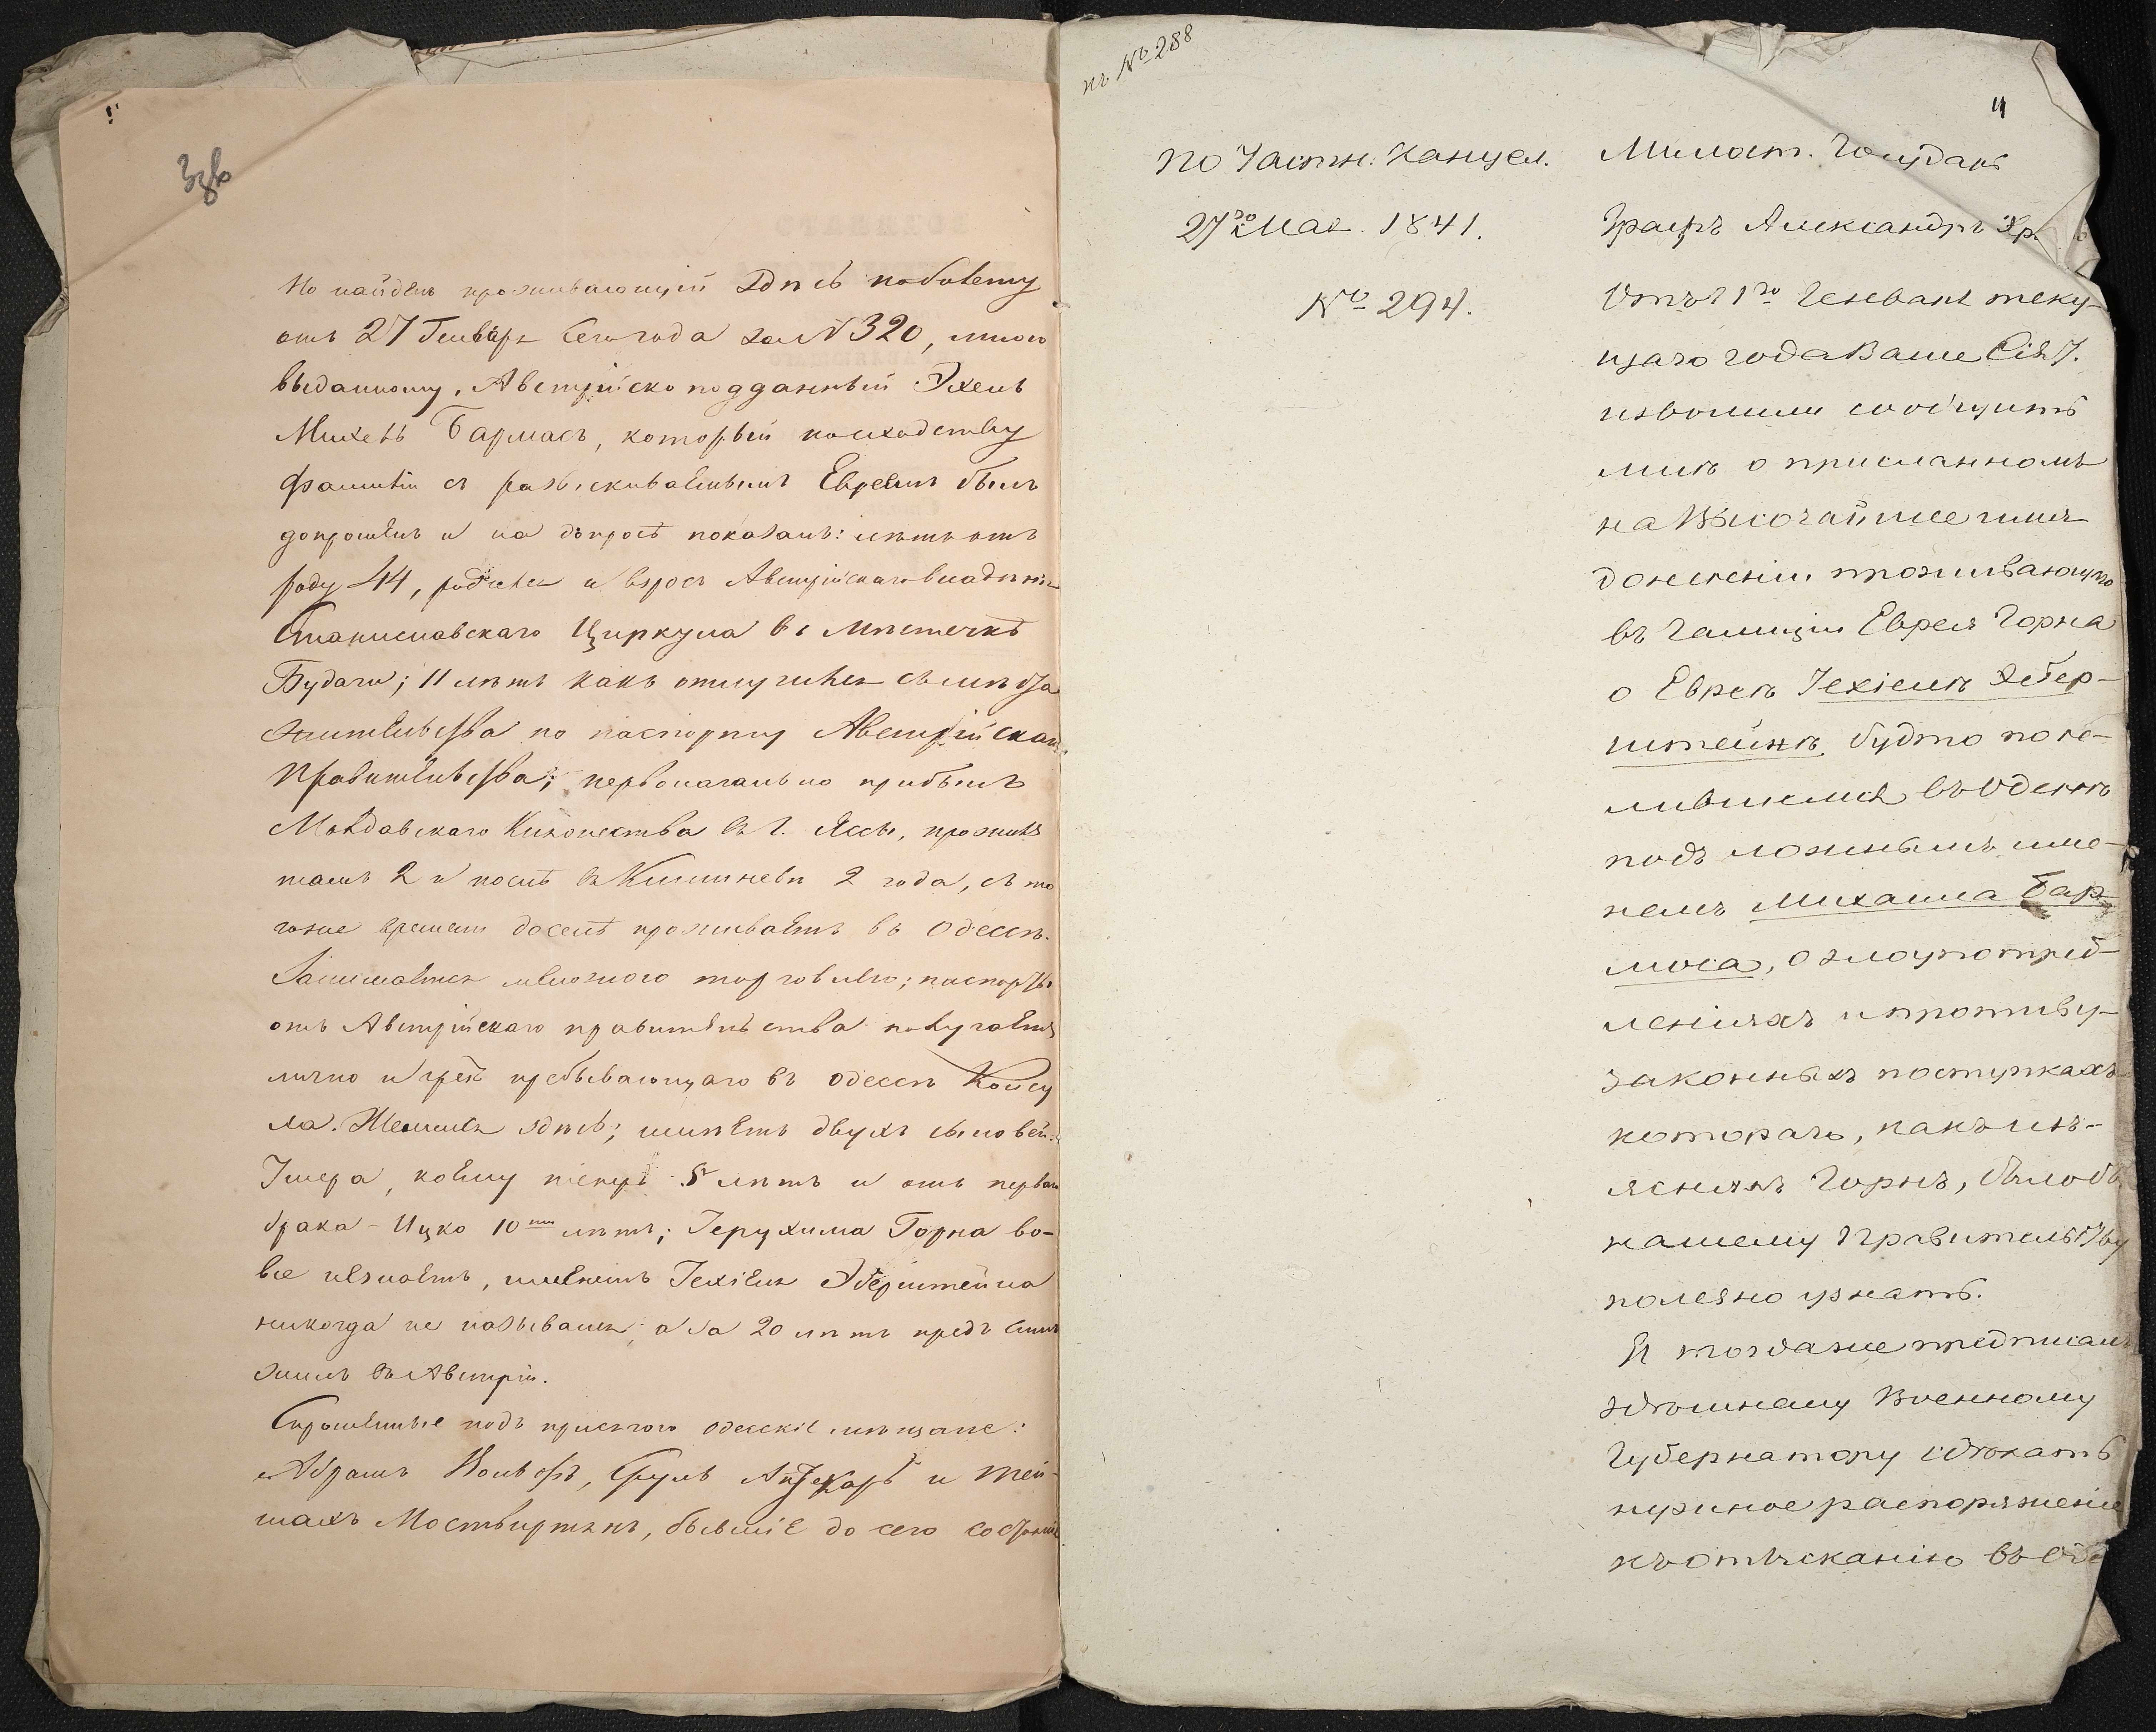 3об
Но найденъ проживающій здѣсь по билету
отъ 27 Генваря сего года за № 320, мною
выданному, Австрійско подданный Эхель
Михель Бармасъ, который по сходству
фамиліи съ разыскиваемымъ Евреемъ былъ
допрошенъ и на допросѣ показалъ: лѣтъ отъ
роду 44, родился и взросъ Австрійскаго владѣнія
Станиславскаго Циркула въ мѣстечкѣ
Будачи; 11 лѣтъ какъ отлучился съ мѣста
жительства по паспорту Австрійскаго
Правительства; первоначально прибылъ
Молдавскаго Княжества въ г. Яссы, проживъ
тамъ 2 и послѣ въ Кишиневѣ 2 года, съ то
гоже времени доселѣ проживаетъ въ Одессѣ.
Занимается мѣлочною торговлею; паспорты
отъ Австрійскаго правительства получаетъ
лично и чрезъ пребывающаго въ Одессѣ Консу
ла. Женился здѣсь; имѣетъ двухъ сыновей:
Имера, коему теперь 5 лѣтъ и отъ перваго
брака - Ицко 10ти лѣтъ; Герухима Горна во-
все не знаетъ, именемъ Іехіеля Эберштейна
никогда не назывался, а за 20 лѣтъ предъ симъ
жилъ въ Австріи.
Спрошенные подъ присягою одесскіе мѣщане:
Абрамъ Вольфъ, Сруль Аптекарь и Мей-
шахъ Моствиртъ, бывшіе до сего
къ № 288
4
По Частн. Канцел.
27го Мая 1841.
№ 294.
Милост. Государь
Графъ Александръ Хр.
Отъ 1го Генваря теку-
щаго года Ваше Сія-
изволили сообщить
мнѣ о присланномъ
на Высочайшее имя
донесеніи проживающаго
въ Галиціи Еврея Горна
о Евреѣ Іехіелѣ Эбер-
штейнѣ, будто посе-
лившемся въ Одессѣ
подъ ложнымъ име-
немъ Михаила Бар-
моса, о злоупотреб-
леніяхъ и противу-
законныхъ поступкахъ
котораго, какъ изъ-
яснялъ Горнъ, было бы
нашему Правительству
полезно узнать.
Я тогда же предписалъ
здѣшнему Военному
Губернатору сдѣлать
нужное распоряженіе
къ отысканію въ Оде